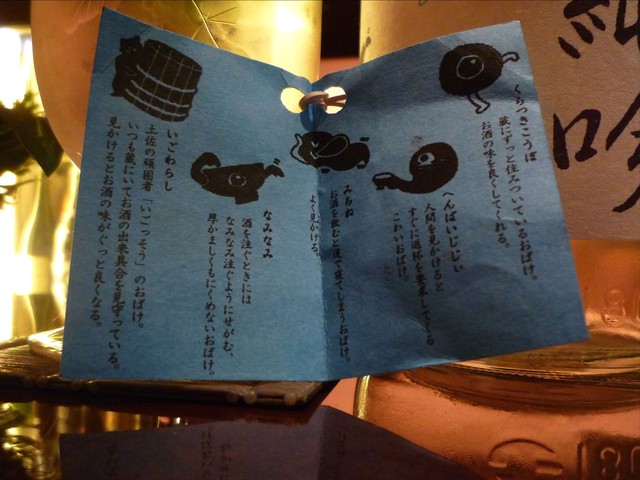 くらつきこうぼ
蔵にずっと住みついているおばけ。
お酒の味を良くしてくれる。
へんぱいじじい
人間を見かけると
すぐに返杯を要求してくる
こわいおばけ。
みちね
お酒を飲むと道で寝てしまうおばけ。
よく見かける。
なみなみ
酒を注ぐときには
なみなみ注ぐようにせがむ、
厚かましくもにくめないおばけ。
いごわらし
土佐の頑固者「いごっそう」のおばけ。
いつも蔵にいてお酒の出来具合を見守っている。
見かけるとお酒の味がぐっと良くなる。
純
吟